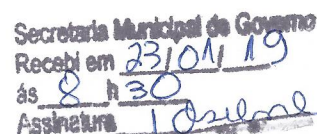 Secretaria Municipal de Governo
Recebi em 23/01/19
ás 8 h 30
Assinatura